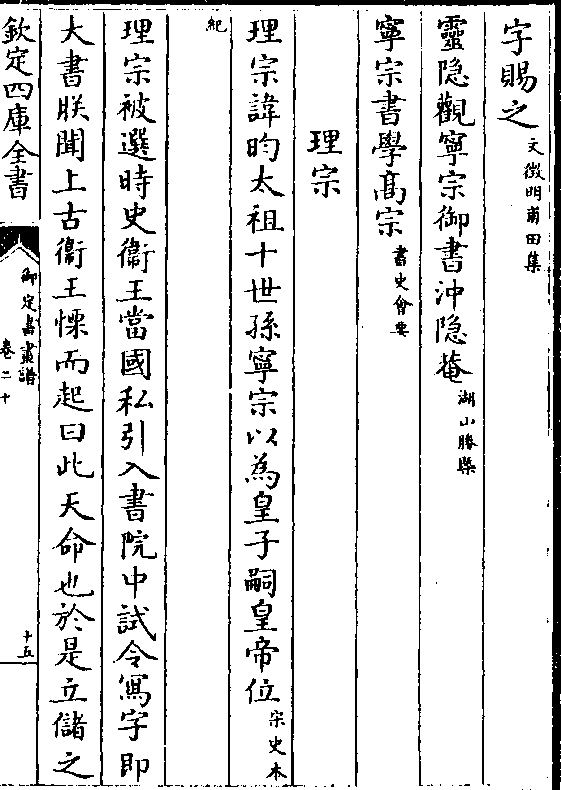 字賜之文徵明甫田集
靈隱觀寧宗御書沖隱菴湖山勝槩
寧宗書學髙宗書史會要
理宗
理宗諱昀太祖十世孫寧宗以為皇子嗣皇帝位宋史本
紀
理宗被選時史衞王當國私引入書院中試令寫字即
大書朕聞上古衞王慄而起曰此天命也於是立儲之
欽定四庫全書
御定書畫譜
卷二十
十五